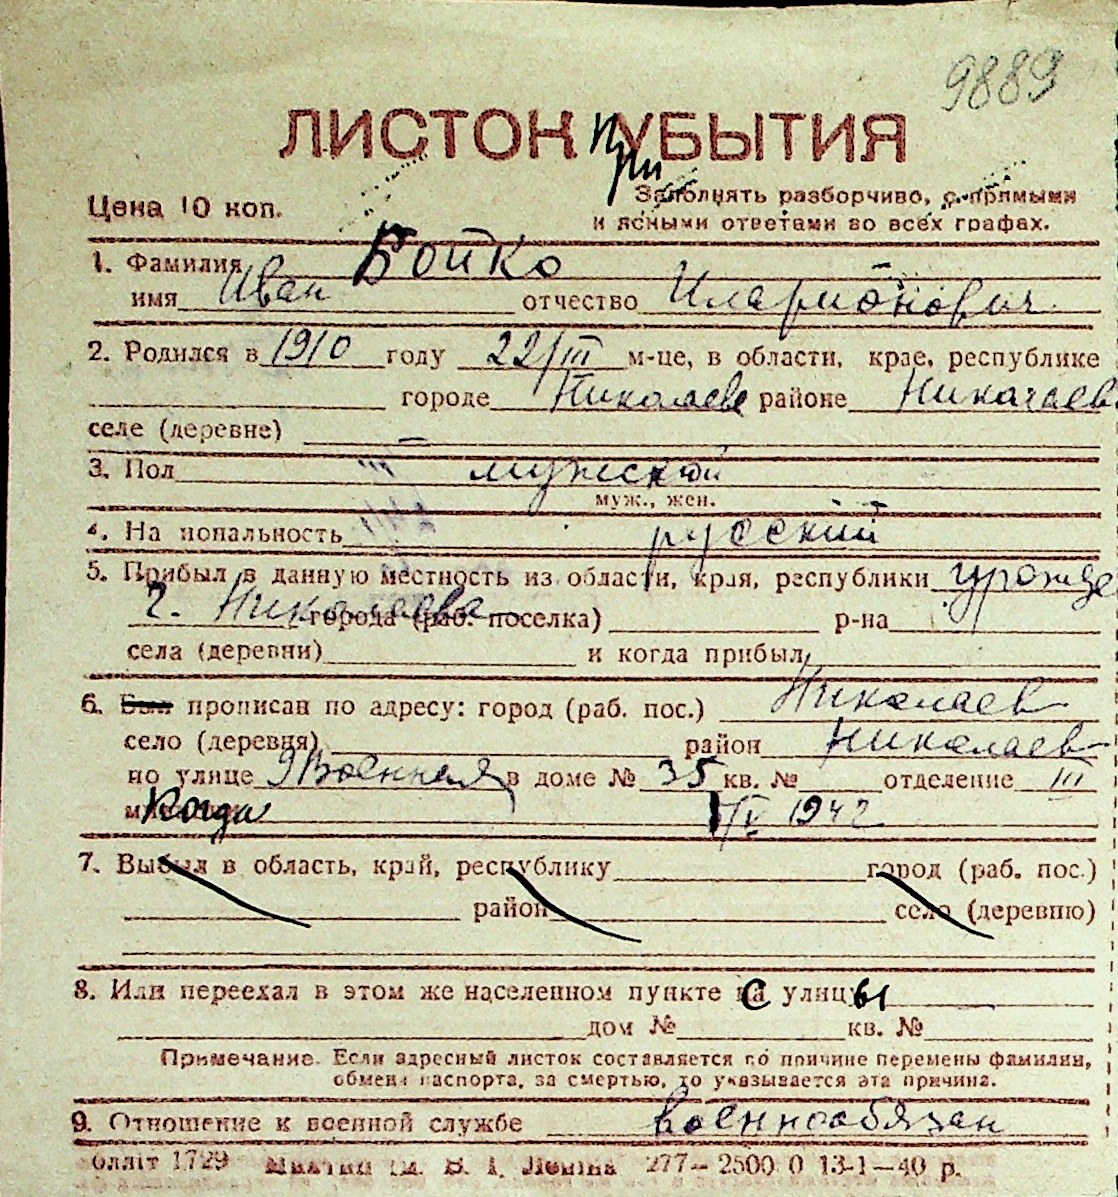 9889
ЛИСТОК при УБЫТИЯ
Цена 10 коп.
Заполнять разборчиво, с прямыми
и ясными ответами во всех графах.
1. Фамилия Бойко
имя Иван отчество Иларионович
2. Родился в 1910 году 22/III м-це, в области, крае, республике
городе Николаеве районе Николаев
селе (деревне) —
3. Пол мужской
муж., жен.
4. Национальность русский
5. Прибыл в данную местность из области, края, республики
г. Николаева города (раб. поселка) р-на
села (деревни) и когда прибыл
6. Был прописан по адресу: город (раб. пос.) Николаев
село (деревня) район Николаев
по улице 9 Военная в доме № 35 кв. № отделение III
когда 1/IV 1942
7. Выбыл в область, край, республику город (раб. пос.)
район село (деревню)
8. Или переехал в этом же населенном пункте с улицы
дом № кв. №
Примечание. Если адресный листок составляется по причине перемены фамилии,
обмена паспорта, за смертью, то указывается эта причина.
9. Отношение к военной службе военнообязан
1729 ім. В. І. Леніна 277—2500 0 13-1—40 р.